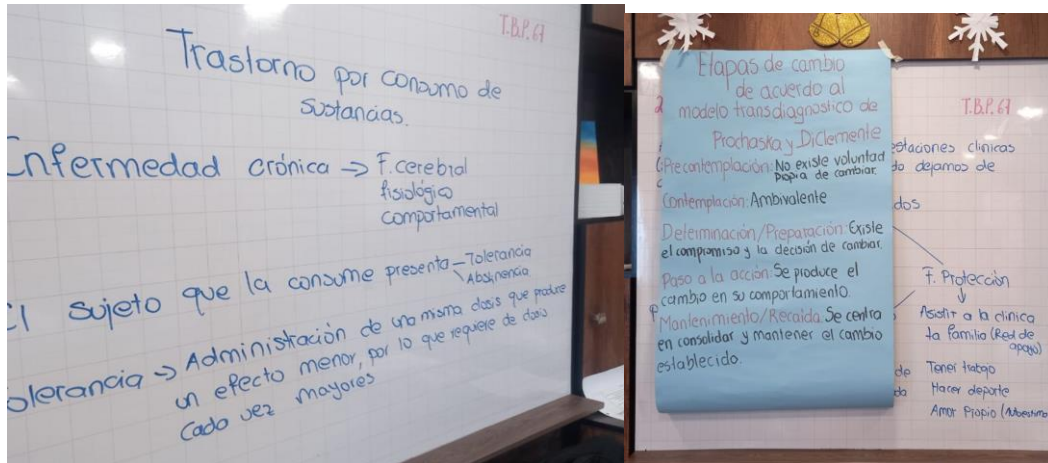 T.B.P. 61
Trastorno por consumo de
sustancias.
Enfermedad crónica → F. cerebral
fisiológico
comportamental
El sujeto que la consume presenta - Tolerancia
\ Abstinencia
Tolerancia → Administración de una misma dosis que produce
un efecto menor, por lo que requiere de dosis
cada vez mayores
Etapas de cambio
de acuerdo al
modelo transdiagnostico de
Prochaska y Diclemente
Precontemplación: No existe voluntad
propia de cambiar.
Contemplación: Ambivalente
Determinación/Preparación: Existe
el compromiso y la decisión de cambiar.
Paso a la acción: Se produce el
cambio en su comportamiento.
Mantenimiento/Recaída: Se centra
en consolidar y mantener el cambio
establecido.
T.B.P. 61
clínicas
dejamos de
F. Protección
↓
Asistir a la clínica
La familia (Red de
apoyo)
Tener trabajo
Hacer deporte
Amor Propio (Autoestima